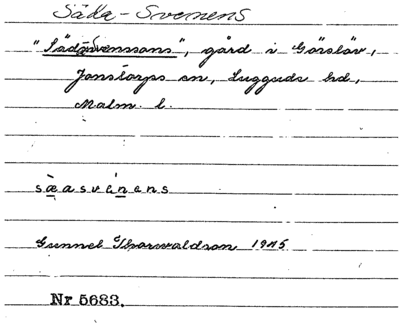 Säda-Svennens
"Sädasvenssons", gård i Görslöv,
Jonstorps sn, Luggude hd,
Malm. l.
sæasvenans
Gunnel Thorwaldson 1945
Nr 5683.